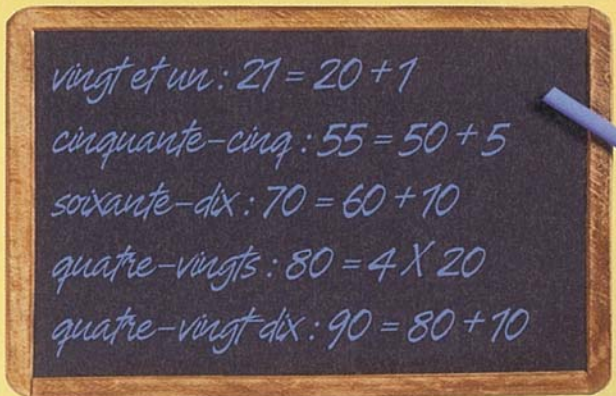 vingt et un : 21 = 20 + 1
cinquante-cinq : 55 = 50 + 5
soixante-dix : 70 = 60 + 10
quatre-vingts : 80 = 4 X 20
quatre-vingt-dix : 90 = 80 + 10